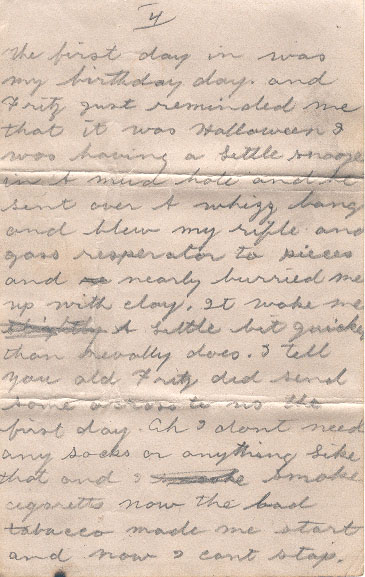 4
the first day in was
my birthday day. and
Fritz just reminded me
that it was Halloween I
was having a little snooze
in A mud hole and he
sent over A whizz bang
and blew my rifle and
gass resperator to pieces
and nearly burried me
up with clay. It woke me
A little bit quicker
than revally does. I tell
you old Fritz did send
some across to us the
first day. Ah I dont need
any socks or anything like
that and I smoke
cigaretts now the bad
tobacco made me start
and now I cant stop.